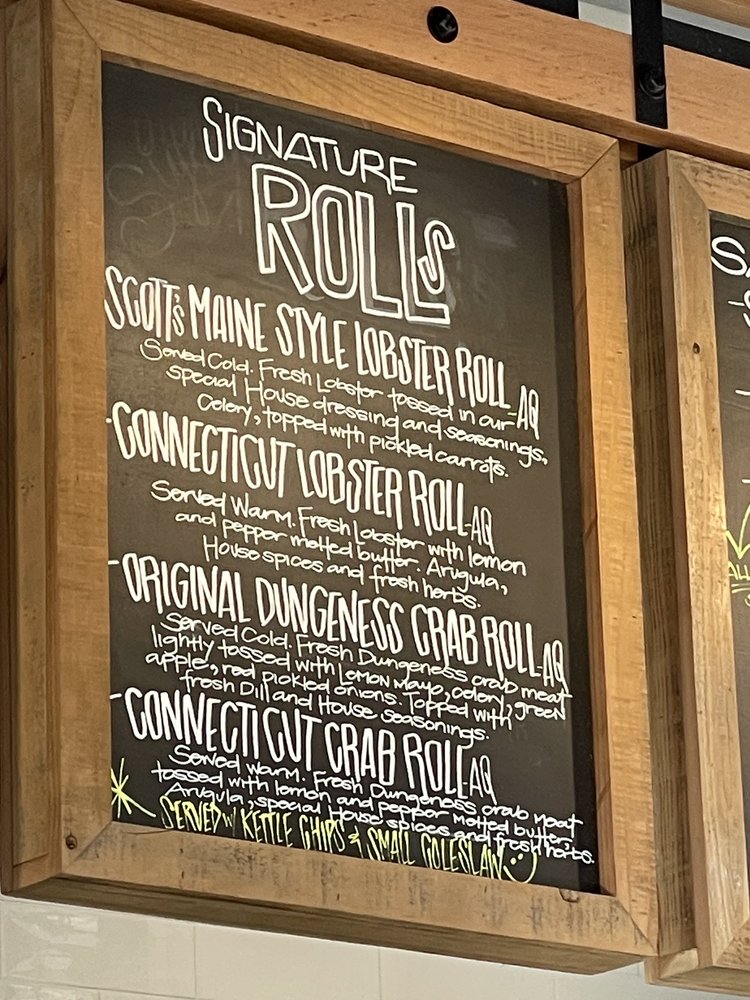 SIGNATURE
ROLLS
SCOTT'S MAINE STYLE LOBSTER ROLL-AQ
Served Cold. Fresh Lobster tossed in our
special House dressing and seasonings,
Celery, topped with pickled carrots.
-CONNECTICUT LOBSTER ROLL-AQ
Served Warm. Fresh Lobster with lemon
and pepper melted butter. Arugula,
House spices and fresh herbs.
-ORIGINAL DUNGENESS CRAB ROLL-AQ
Served Cold. Fresh Dungeness crab meat
lightly tossed with Lemon Mayo, celery, green
apple, red pickled onions. Topped with
fresh Dill and House seasonings.
-CONNECTICUT CRAB ROLL AQ
Served warm. Fresh Dungeness crab meat
tossed with lemon and pepper melted butter,
Arugula, special House spices and fresh herbs.
SERVED w/ KETTLE CHIPS & SMALL COLESLAW